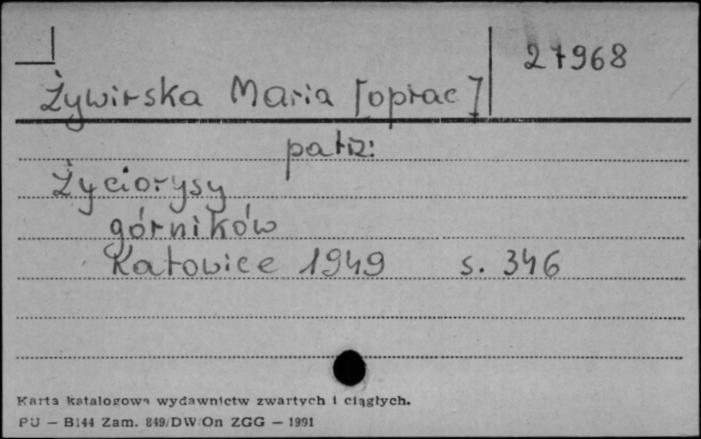 27968
Żywirska Maria [oprac]
patrz:
Życiorysy
górników
Katowice 1949 s. 346
Karta katalogowa wydawnictw zwartych i ciągłych.
PU — B144 Zam. 849/DW/On ZGG — 1991